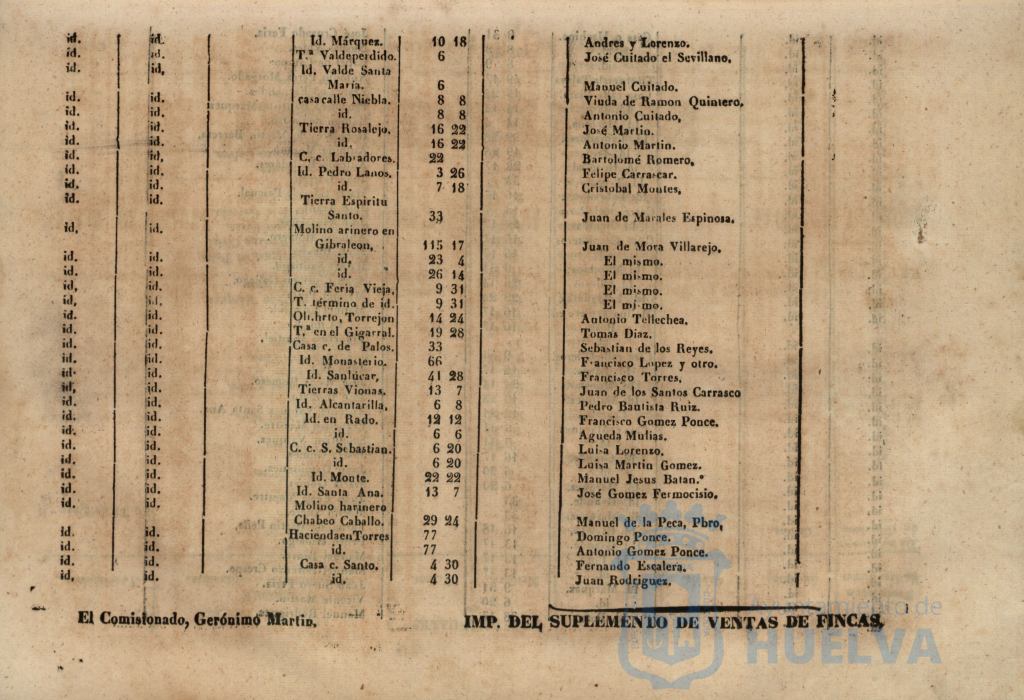 id. id. Id. Márquez. 10 18 Andres y Lorenzo.
id. id. T.ª Valdeperdido. 6 José Cuitado el Sevillano.
id. id, Id. Valde Santa
María. 6 Manuel Cuitado.
id. id. casa calle Niebla. 8 8 Viuda de Ramon Quintero,
id. id. id. 8 8 Antonio Cuitado,
id. id. Tierra Rosalejo, 16 22 José Martin.
id. id. id, 16 22 Antonio Martin.
id. id, C. c. Labradores. 22 Bartolomé Romero,
id. id. Id. Pedro Lanos. 3 26 Felipe Carrascar.
id. id. id. 7 18 Cristobal Montes,
id. id. Tierra Espiritu
Santo. 33 Juan de Marales Espinosa.
id, id. Molino arinero en
Gibraleon, 115 17 Juan de Mora Villarejo.
id. id. id, 23 4 El mismo.
id. id. id. 26 14 El mismo.
id. id. C. c. Feria Vieja, 9 31 El mismo.
id, id. T. término de id. 9 31 El mismo.
id. id. Oli.hrto, Torrejon 14 24 Antonio Tellechea.
id. id. T.ª en el Gigarral. 19 28 Tomas Diaz.
id. id. Casa c. de Palos. 33 Sebastian de los Reyes.
id. id. Id. Monasterio. 66 Francisco Lopez y otro.
id. id. Id. Sanlúcar, 41 28 Francisco Torres.
id, id. Tierras Vionas. 13 7 Juan de los Santos Carrasco
id. id. Id. Alcantarilla, 6 8 Pedro Bautista Ruiz.
id. id. Id. en Rado. 12 12 Francisco Gomez Ponce.
id. id. id. 6 6 Agueda Mulias.
id. id. C. c. S. Sebastian. 6 20 Luisa Lorenzo.
id. id. id. 6 20 Luisa Martin Gomez.
id. id. Id. Monte. 22 22 Manuel Jesus Batan.
id. id. Id. Santa Ana. 13 7 José Gomez Fermocisio.
id. id. Molino harinero
Chabeo Caballo. 29 24 Manuel de la Peca, Pbro,
id. id. Hacienda en Torres 77 Domingo Ponce.
id. id. id. 77 Antonio Gomez Ponce.
id. id. Casa c. Santo. 4 30 Fernando Escalera.
id, id. id. 4 30 Juan Rodriguez.
El Comisionado, Gerónimo Martin.
IMP. DEL SUPLEMENTO DE VENTAS DE FINCAS,
Ayuntamiento de
HUELVA